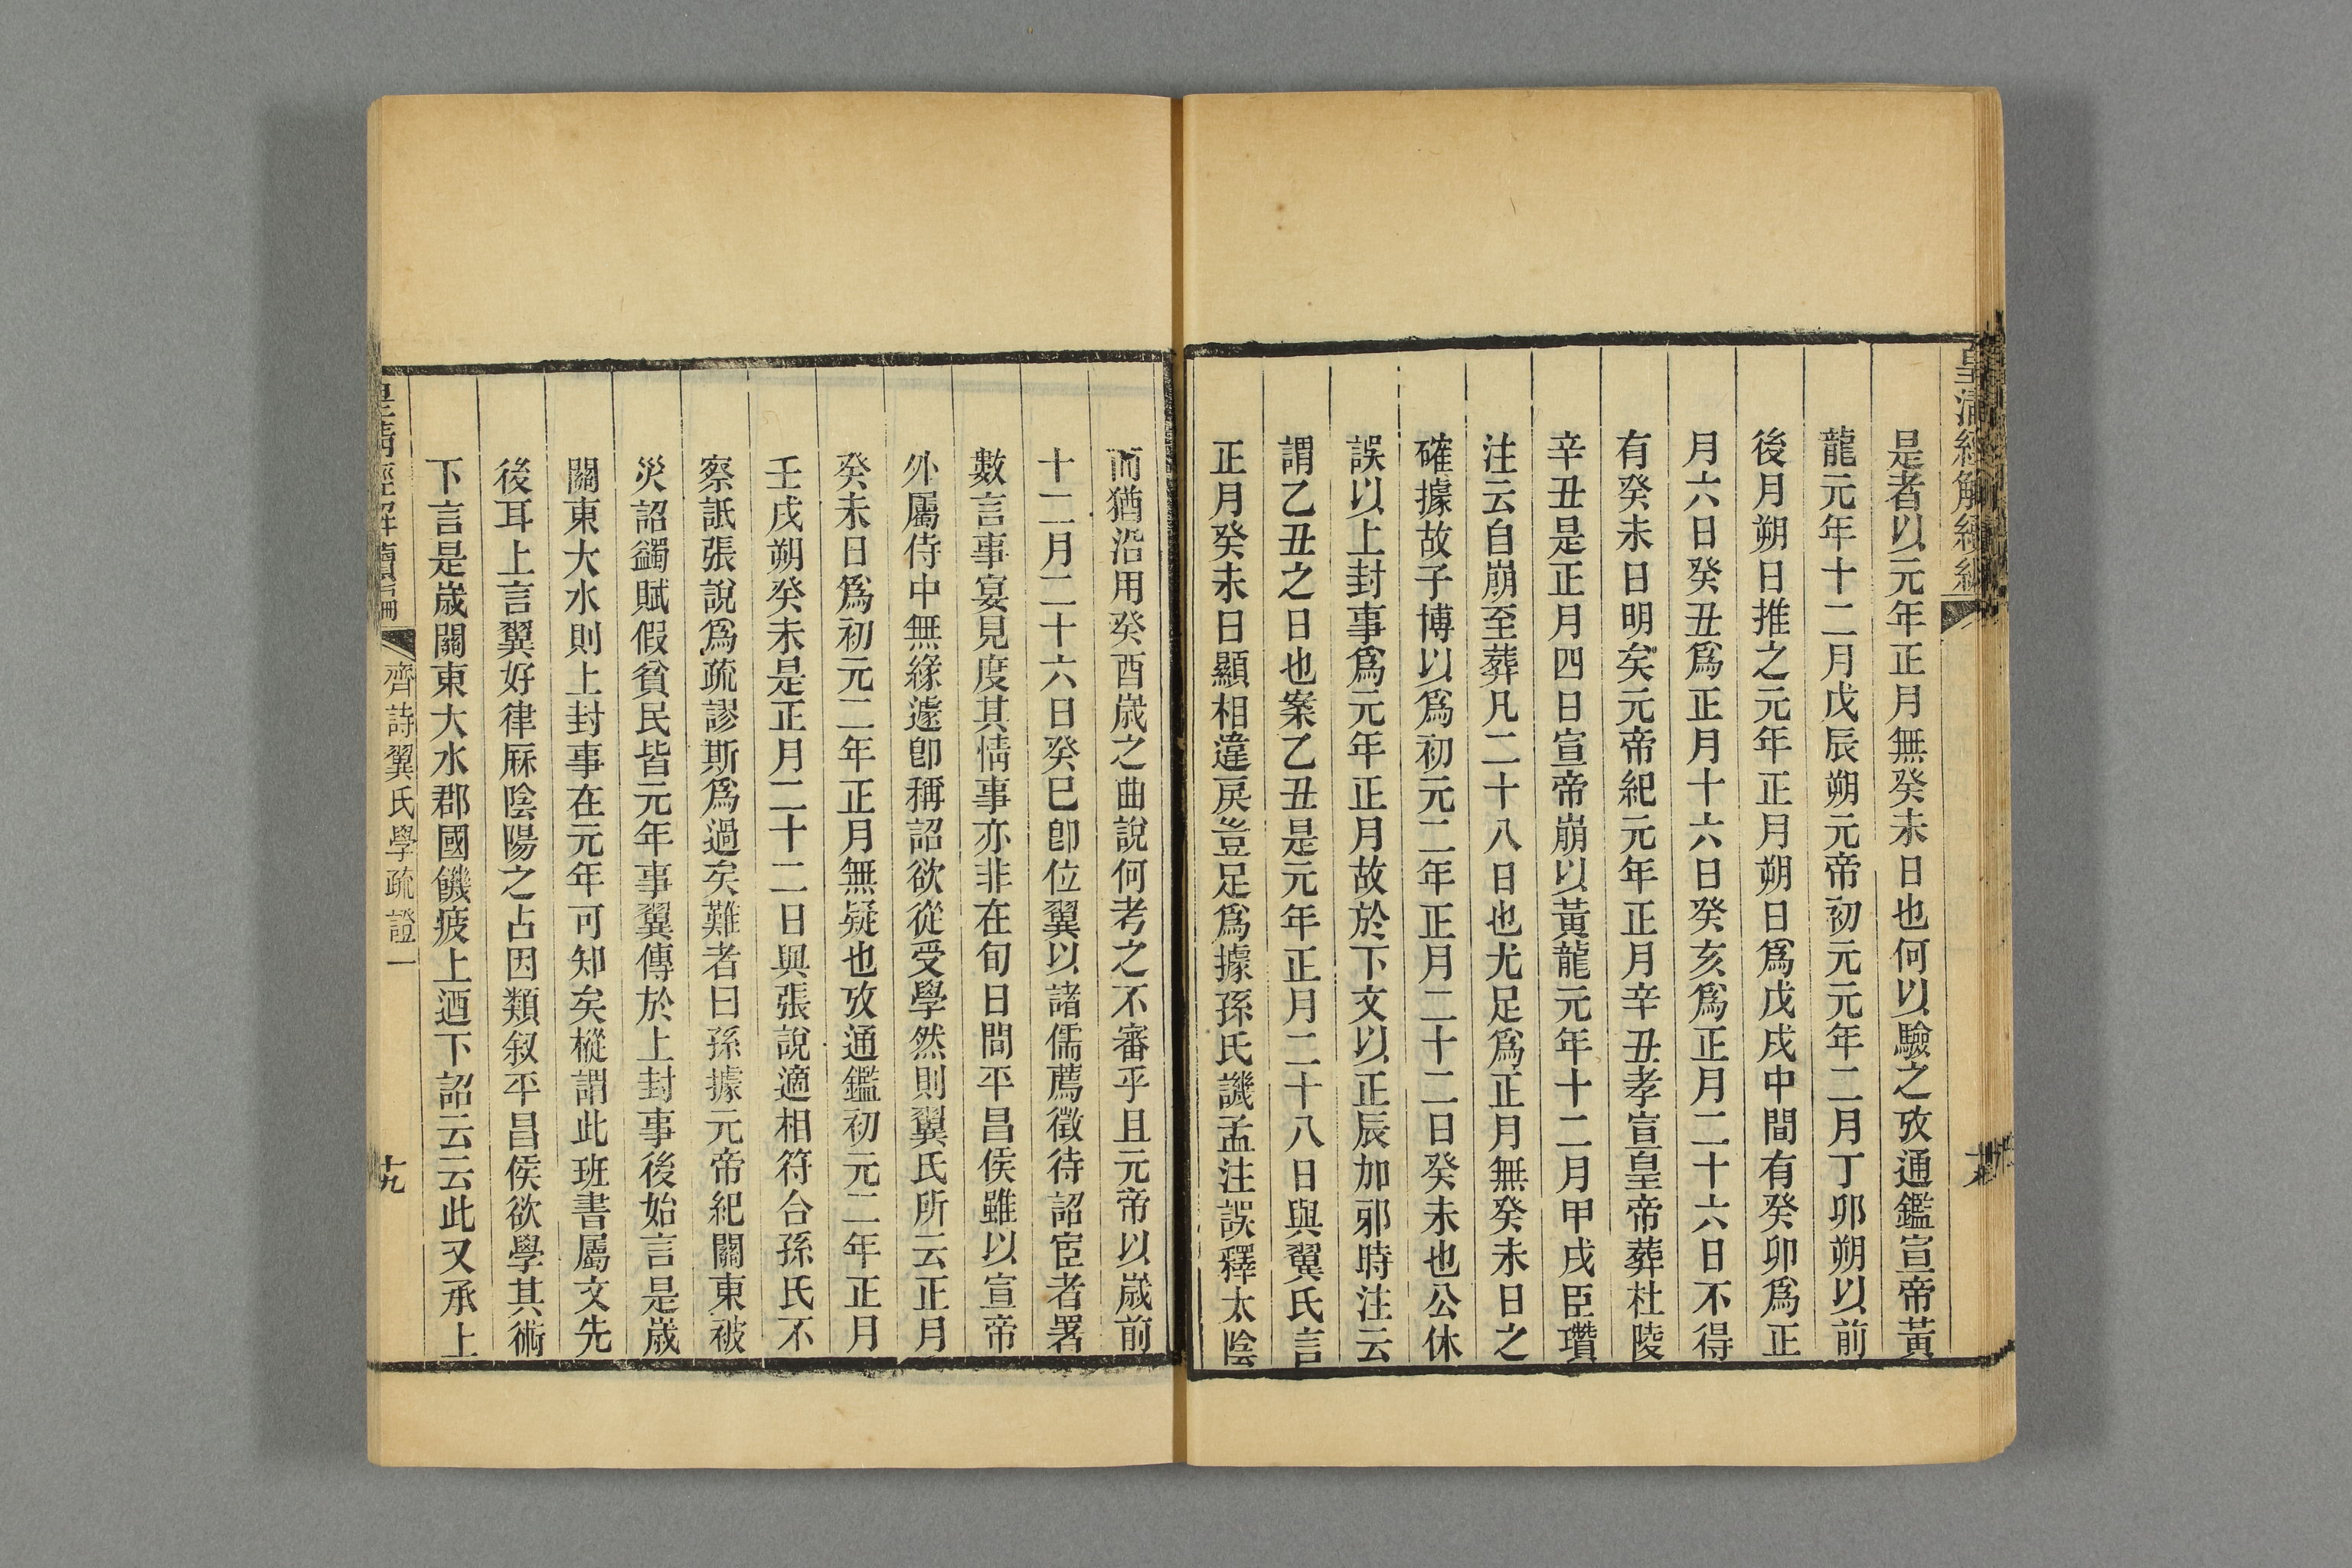 皇清經解續編
是者以元年正月無癸未日也何以驗之攷通鑑宣帝黃
龍元年十二月戊辰朔元帝初元元年二月丁卯朔以前
後月朔日推之元年正月朔日爲戊戌中間有癸卯爲正
月六日癸丑爲正月十六日癸亥爲正月二十六日不得
有癸未日明矣元帝紀元年正月辛丑孝宣皇帝葬杜陵
辛丑是正月四日宣帝崩以黃龍元年十二月甲戌臣瓚
注云自崩至葬凡二十八日也尤足爲正月無癸未日之
確據故子博以爲初元二年正月二十二日癸未也公休
誤以上封事爲元年正月故於下文以正辰加邪時注云
謂乙丑之日也案乙丑是元年正月二十八日與翼氏言
正月癸未日顯相違戾豈足爲據孫氏譏孟注誤釋太陰
而猶沿用癸酉歲之曲說何考之不審乎且元帝以歲前
十二月二十六日癸巳卽位翼以諸儒薦徵待詔宦者署
數言事宴見度其情事亦非在旬日間平昌侯雖以宣帝
外屬侍中無緣遽卽稱詔欲從受學然則翼氏所云正月
癸未日爲初元二年正月無疑也攷通鑑初元二年正月
壬戌朔癸未是正月二十二日與張說適相符合孫氏不
察詆張說爲疏謬斯爲過矣難者曰孫據元帝紀關東被
災詔蠲賦假貧民皆元年事翼傳於上封事後始言是歲
關東大水則上封事在元年可知矣樅謂此班書屬文先
後耳上言翼好律厤陰陽之占因類敘平昌侯欲學其術
下言是歲關東大水郡國饑疲上迺下詔云云此又承上
皇清經解續編
齊詩翼氏學疏證一
十九